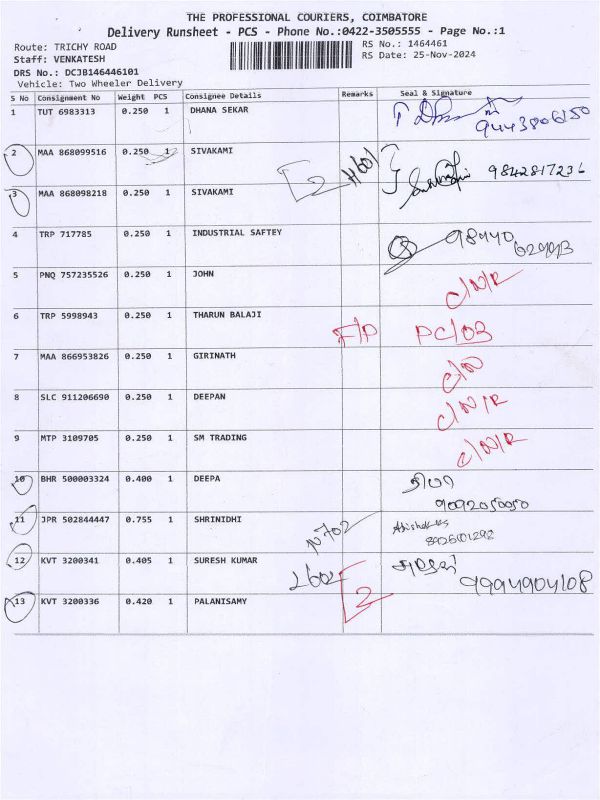 THE PROFESSIONAL COURIERS, COIMBATORE
Delivery Runsheet - PCS - Phone No.:0422-3505555 - Page No.:1
Route: TRICHY ROAD
RS No.: 1464461
Staff: VENKATESH
RS Date: 25-Nov-2024
DRS No.: DCJB146446101
Vehicle: Two Wheeler Delivery
S No Consignment No Weight PCS Consignee Details Remarks Seal & Signature
1 TUT 6983313 0.250 1 DHANA SEKAR 9443806150
2 MAA 868099516 0.250 1 SIVAKAMI H601
3 MAA 868098218 0.250 1 SIVAKAMI 2 9842817236
4 TRP 717785 0.250 1 INDUSTRIAL SAFTEY 98440
5 PNQ 757235526 0.250 1 JOHN C/N/R
6 TRP 5998943 0.250 1 THARUN BALAJI F/P PC/03
7 MAA 866953826 0.250 1 GIRINATH C/N
8 SLC 911206690 0.250 1 DEEPAN C/N/R
9 MTP 3109705 0.250 1 SM TRADING C/N/R
10 BHR 500003324 0.400 1 DEEPA தீபா
9092050050
11 JPR 502844447 0.755 1 SHRINIDHI N702
12 KVT 3200341 0.405 1 SURESH KUMAR L602
9994904108
13 KVT 3200336 0.420 1 PALANISAMY 2